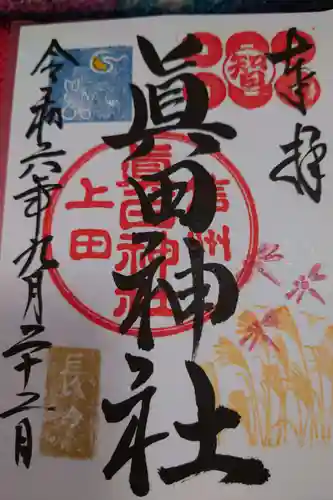 奉拝
智
眞田神社
信州
眞田神社
上田
令和六年九月二十二日